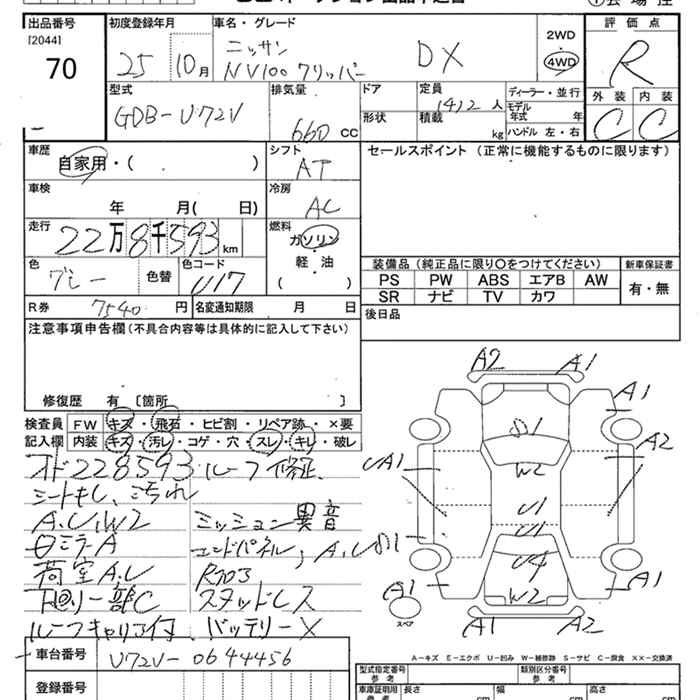 出品番号
[2044]
70
初度登録年月
25 10月
車名・グレード
ニッサン
NV100クリッパー DX
2WD
4WD
評価点
R
外装 内装
C C
型式
GDB-U72V
排気量
660 CC
ドア
形状
定員
1412人
積載
kg
ディーラー・並行
モデル
年式 年
ハンドル 左・右
車歴
自家用・( )
シフト
AT
車検
年 月( 日)
冷房
AC
走行
22万8千593km
燃料
ガソリン
軽・油
( )
色
グレー
色替
色コード
U17
R券
7540円
名変通知期限 月 日
セールスポイント (正常に機能するものに限ります)
装備品(純正品に限り○をつけてください)
新車保証書
PS PW ABS エアB AW
SR ナビ TV カワ
有・無
後日品
注意事項申告欄(不具合内容等は具体的に記入して下さい)
修復歴 有 [箇所 ]
検査員
記入欄
FW キズ・飛石・ヒビ割・リペア跡・×要
内装 キズ・汚レ・コゲ・穴・スレ・キレ・破レ
オド228593 ルーフ修正
シートもし、こ汚れ
A.U.W2 ミッション異音
ロミラーA エンドパネル, A.U
荷室A.U R703
下回り一部C スタッドレス
ルーフキャリア付 バッテリーX
A2 A1
A1
S1
A2
UA1
W2
U1
U1
S1
U4
A1
W2
A1
スペア
A1 A2
車台番号
U72V-0644456
登録番号
A-キズ E-エクボ U-凹み W-補修跡 S-サビ C-腐食 XX-交換済
型式指定番号
参考
類別区分番号
参考
車庫証明用
参考
長さ
cm
幅
cm
高さ
cm